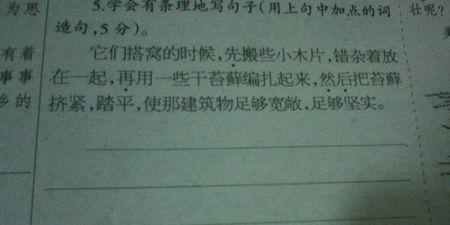 为思
有着
事事
乡的
5.学会有条理地写句子(用上句中加点的词
造句,5分)。
它们搭窝的时候,先搬些小木片,错杂着放
在一起,再用一些干苔藓编扎起来,然后把苔藓
挤紧,踏平,使那建筑物足够宽敞,足够坚实。
壮呢?